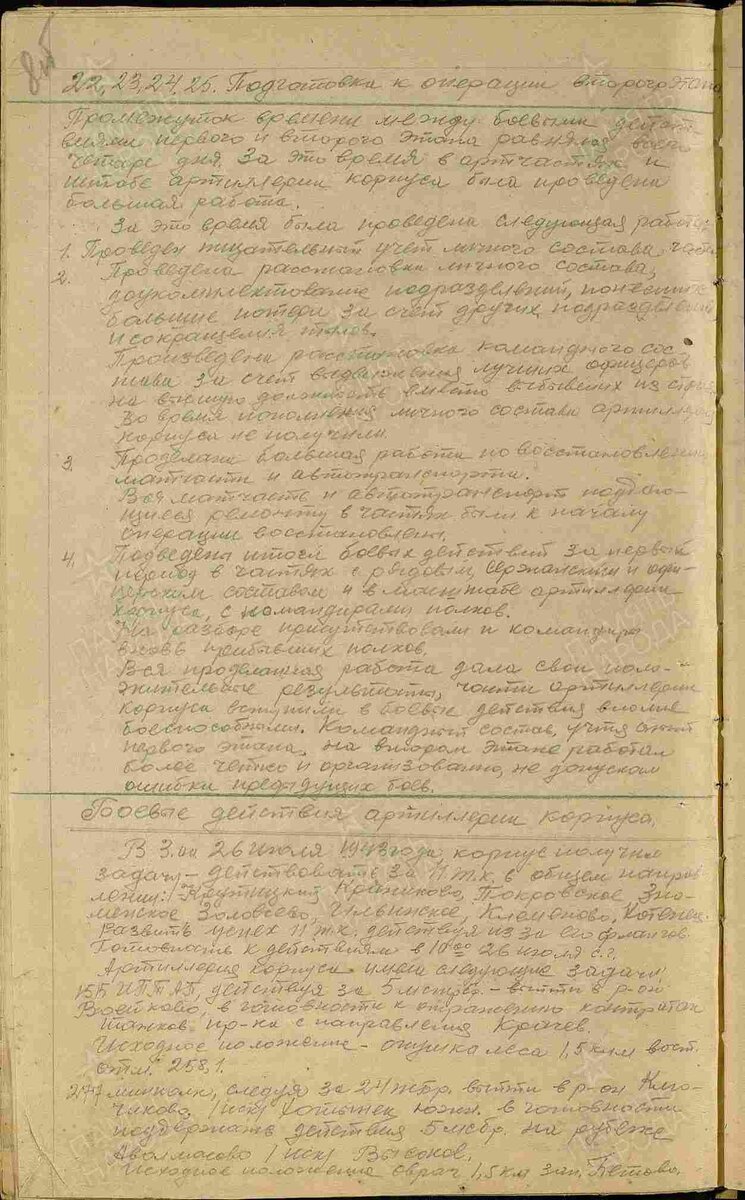 22, 23, 24, 25. Подготовка к операции второго этапа
Промежуток времени между боевыми дейст-
виями первого и второго этапа равнялся всего
четыре дня. За это время в артчастях и
штабе артиллерии корпуса была проведена
большая работа.
За это время была проведена следующая работа:
1. Проведен тщательный учет личного состава частей
2. Проведена расстановка личного состава,
доукомплектование подразделений, понесших
большие потери за счет других подразделений
и сокращения тылов.
Произведена расстановка командного сос-
тава за счет выдвижения лучших офицеров
на высшую должность вместо выбывших из строя
Во время пополнения личного состава артиллерия
корпуса не получила.
3. Проделана большая работа по восстановлению
матчасти и автотранспорта.
Вся матчасть и автотранспорт подлежа-
щиеся ремонту в частях были к началу
операции восстановлены.
4. Подведены итоги боевых действий за первый
период в частях с рядовым, сержантским и офи-
церским составом и в масштабе артиллерии
корпуса, с командирами полков.
На разборе присутствовали и командиры
вновь прибывших полков.
Вся проделанная работа дала свои поло-
жительные результаты, части артиллерии
корпуса вступили в боевые действия вполне
боеспособными. Командный состав, учтя опыт
первого этапа, на втором этапе работал
более четко и организованно, не допуская
ошибки предыдущих боев.
Боевые действия артиллерии корпуса.
В 3.00 26 июля 1943 года корпус получил
задачу - действовать за 11 т.к. в общем направ-
лении: Красниково, Покровское, Зна-
менское, Золовсево, Ильинское, Клеменово, Хотенец.
Развить успех 11 т.к. действуя из за его флангов.
Готовность к действиям в 10 00 26 июля с.г.
Артиллерия корпуса имела следующие задачи
ИПТАП, действуя за 5 мстр. бр. - выйти в р-он
Войтково, в готовности к отражению контратак
танков пр-ка с направления Крачев.
Исходное положение - опушка леса 1,5 км вост.
отм. 258,1.
277 минполк, следуя за 24 тбр. выйти в р-он Клю-
чиково, /иск/ Хотынец южн. в готовности
поддержать действия 5 мсбр. на рубеже
/иск/ Высокое.
Исходное положение овраг 1,5 км зап. Бетово.